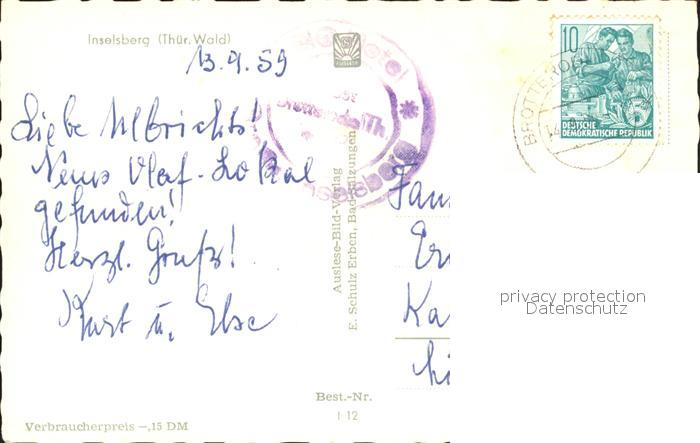 Inselsberg (Thür. Wald)
13.9.59
Liebe Ulbrichts!
Neues Lokal
gefunden!
Herzl. Gruß!
Kurt u. Else
Verbraucherpreis -,15 DM
Auslese-Bild-Verlag
E. Schulz Erben, Bad Salzungen
Best.-Nr.
I 12
10
DEUTSCHE
DEMOKRATISCHE REPUBLIK
5
BROTTERODE
Fam
Er
Ka
privacy protection
Datenschutz